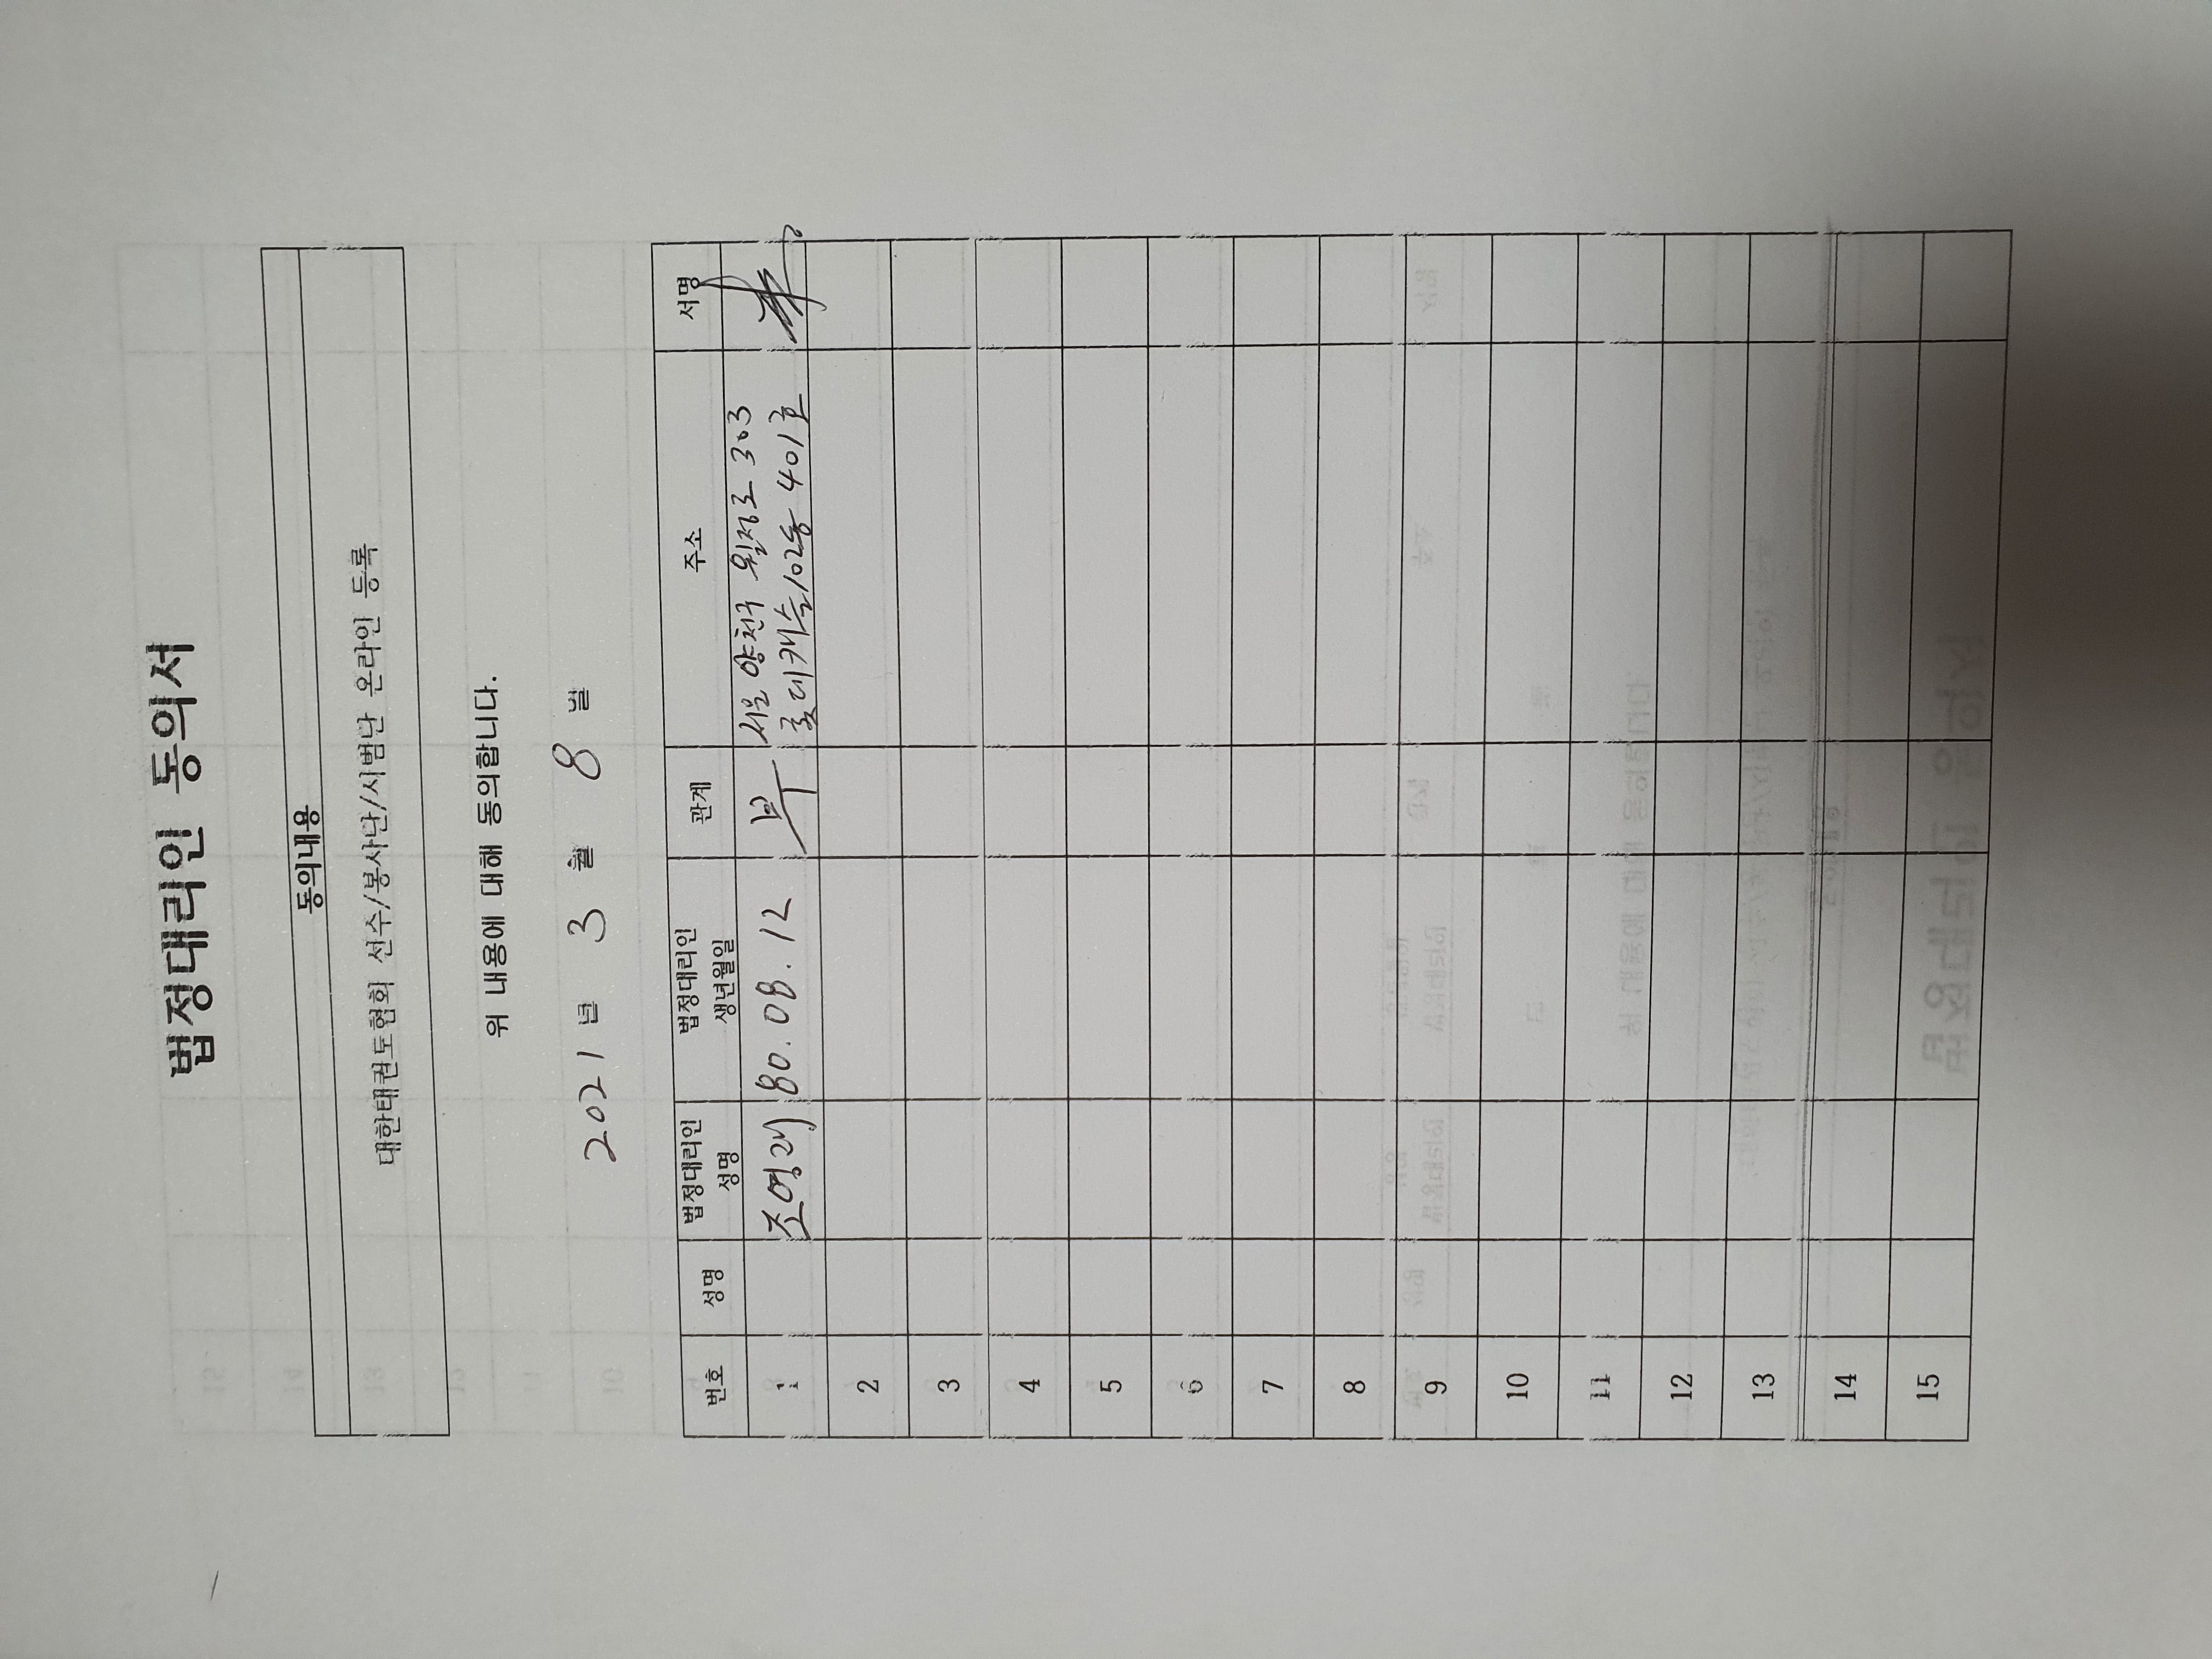 법정대리인 동의서
동의내용
대한태권도협회 선수/봉사단/시범단 온라인 등록
위 내용에 대해 동의합니다.
2021 년 3 월 8 일
번호 성명 법정대리인 성명 법정대리인 생년월일 관계 주소 서명
1 조영래 80.08.12 부 서울 양천구 월정로 303
롯데캐슬 102동 401호
2
3
4
5
6
7
8
9
10
11
12
13
14
15